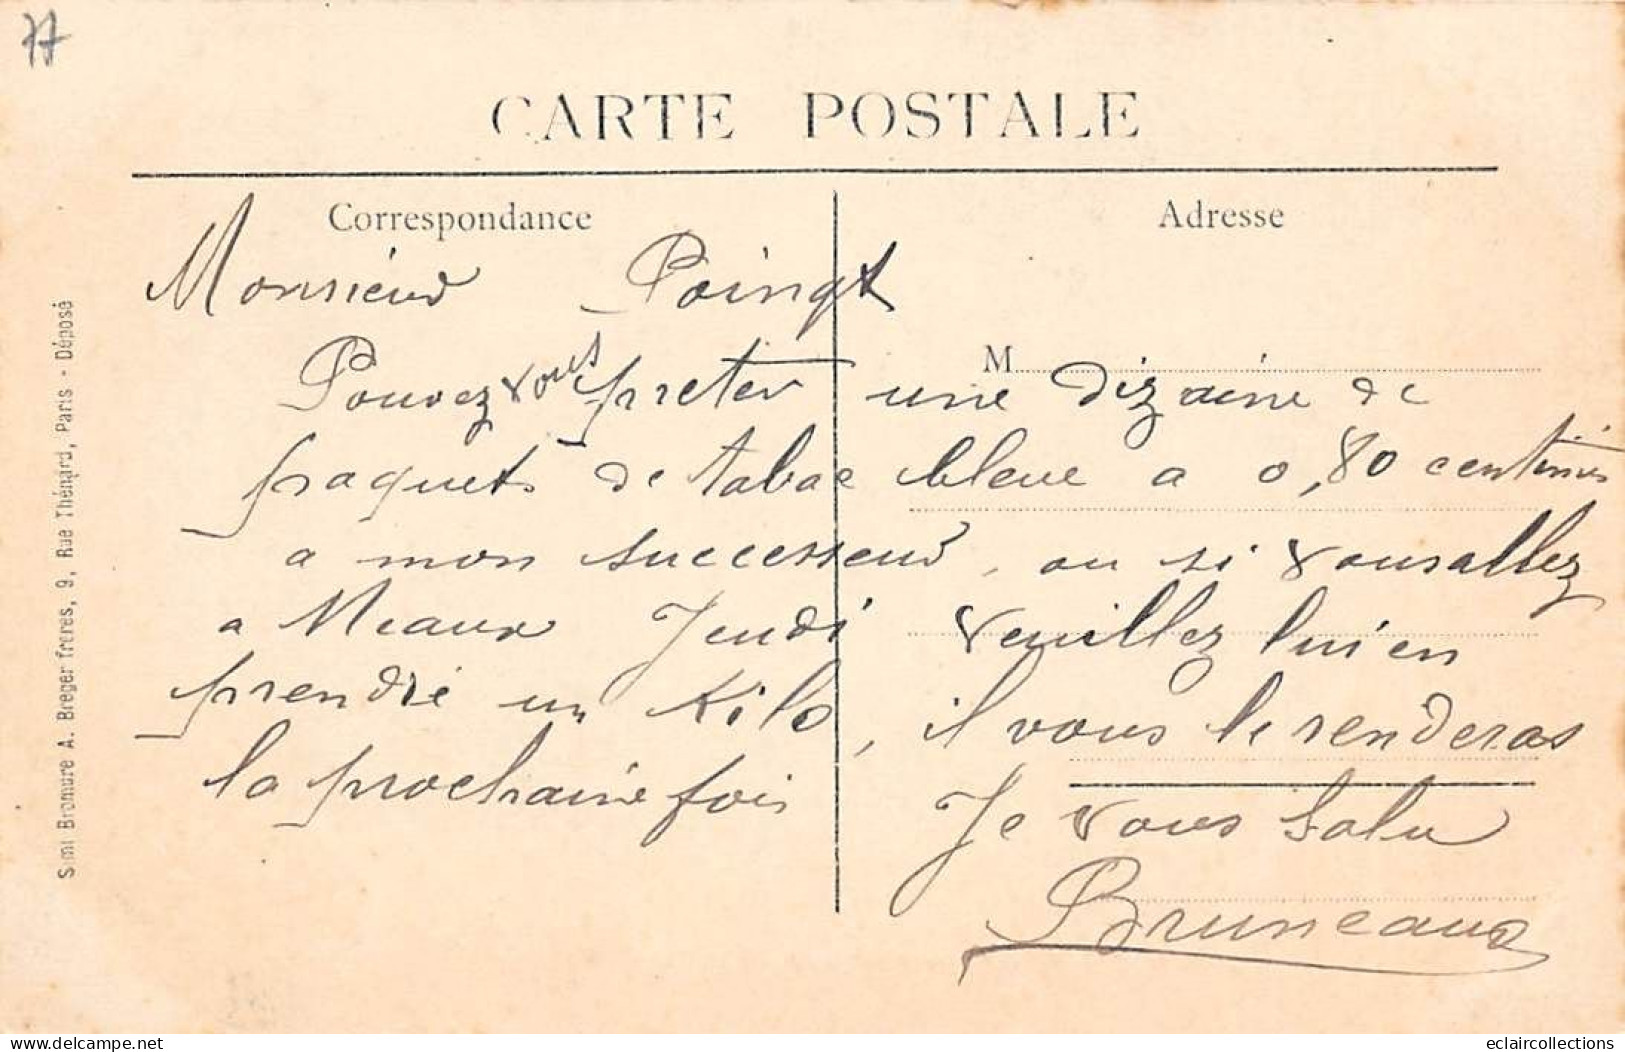 77
CARTE POSTALE
Correspondance
Adresse
Monsieur Poingt
M
Pouvez vous preter une dizaine de
paquets de tabac bleue a 0,80 centimes
a mon successeur, ou si vous allez
a Meaux Jeudi veuillez lui en
prendre un Kilo, il vous le renderas
la prochaine fois
Je vous salu
Bruneaux
Simi Bromure A. Breger frères, 9, Rue Thénard, Paris - Déposé
delcampe.net
eclaircollections